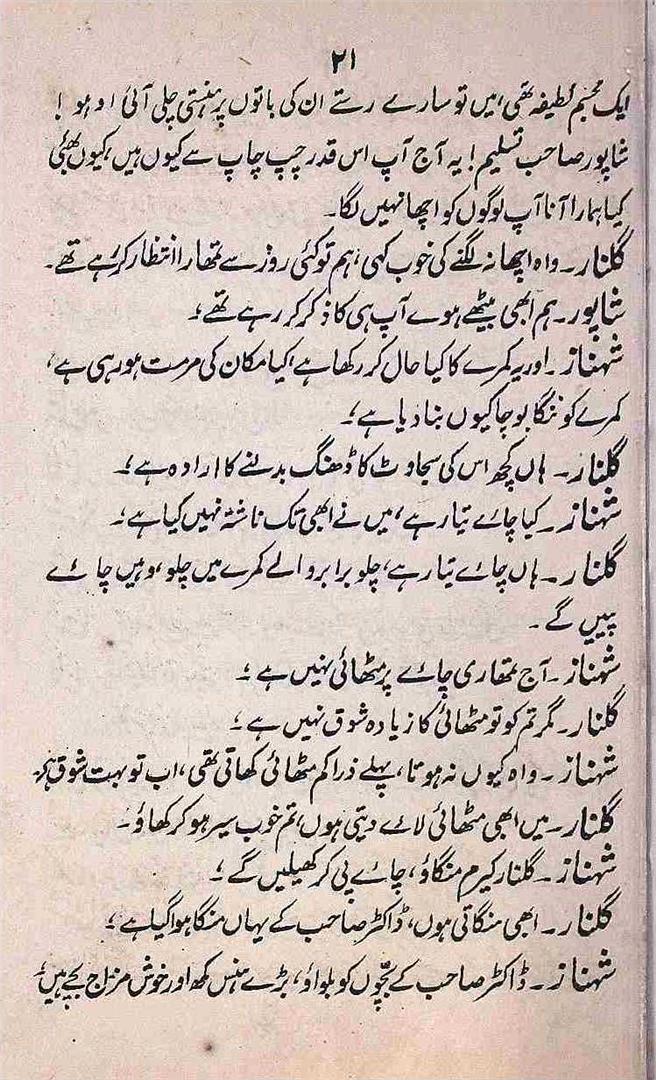 ۲۱
ایک مجسم لطیفہ تھی، میں تو سارے رستے ان کی باتوں پر ہنستی چلی آئی او ہو !
شاپور صاحب تسلیم! یہ آج آپ اس قدر چپ چاپ سے کیوں ہیں، کیوں بھئی
کیا ہمارا آنا آپ لوگوں کو اچھا نہیں لگا۔
گلنار۔ واہ اچھا نہ لگنے کی خوب کہی، ہم تو کئی روز سے تمھارا انتظار کر رہے تھے۔
شاپور۔ ہم ابھی بیٹھے ہوے آپ ہی کا ذکر کر رہے تھے؛
شہناز۔ اور یہ کمرے کا کیا حال کر رکھا ہے، کیا مکان کی مرمت ہو رہی ہے،
کمرے کو ننگا بوچا کیوں بنا دیا ہے؛
گلنار۔ ہاں کچھ اس کی سجاوٹ کا ڈھنگ بدلنے کا ارادہ ہے؛
شہناز۔ کیا چاے تیار ہے، میں نے ابھی تک ناشتہ نہیں کیا ہے؛
گلنار۔ ہاں چاے تیار ہے، چلو برابر والے کمرے میں چلو، وہیں چاے
پییں گے۔
شہناز۔ آج تمھاری چاے پر مٹھائی نہیں ہے؛
گلنار۔ مگر تم کو تو مٹھائی کا زیادہ شوق نہیں ہے؛
شہناز۔ واہ کیوں نہ ہوتا، پہلے ذرا کم مٹھائی کھاتی تھی، اب تو بہت شوق ہے؛
گلنار۔ میں ابھی مٹھائی لاے دیتی ہوں، تم خوب سیر ہو کر کھاؤ۔
شہناز۔ گلنار کیرم منگاؤ، چاے پی کر کھیلیں گے؛
گلنار۔ ابھی منگاتی ہوں، ڈاکٹر صاحب کے یہاں منگا ہوا گیا ہے؛
شہناز۔ ڈاکٹر صاحب کے بچّوں کو بلواؤ، بڑے ہنس مکھ اور خوش مزاج بچے ہیں؛